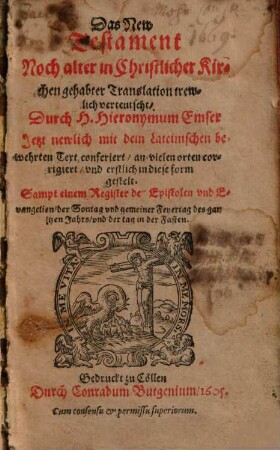 Das New
Testament
Noch alter in Christlicher Kir-
chen gehabter Translation trew-
lich verteutscht/
Durch H. Hieronymum Emser
Jetzt newlich mit dem Lateinischen be-
wehrten Text conferiert/ an vielen orten cor-
rigiert/ vnd erstlich in diese form
gestelt.
Sampt einem Register der Epistolen vnd E-
vangelien/ der Sontag vnd gemeiner Feyertag des gan
tzen Jahrs/ vnd der tag in der Fasten.
Gedruckt zu Cöllen
Durch Conradum Butgenium/ 1605.
Cum consensu & permissu superiorum.